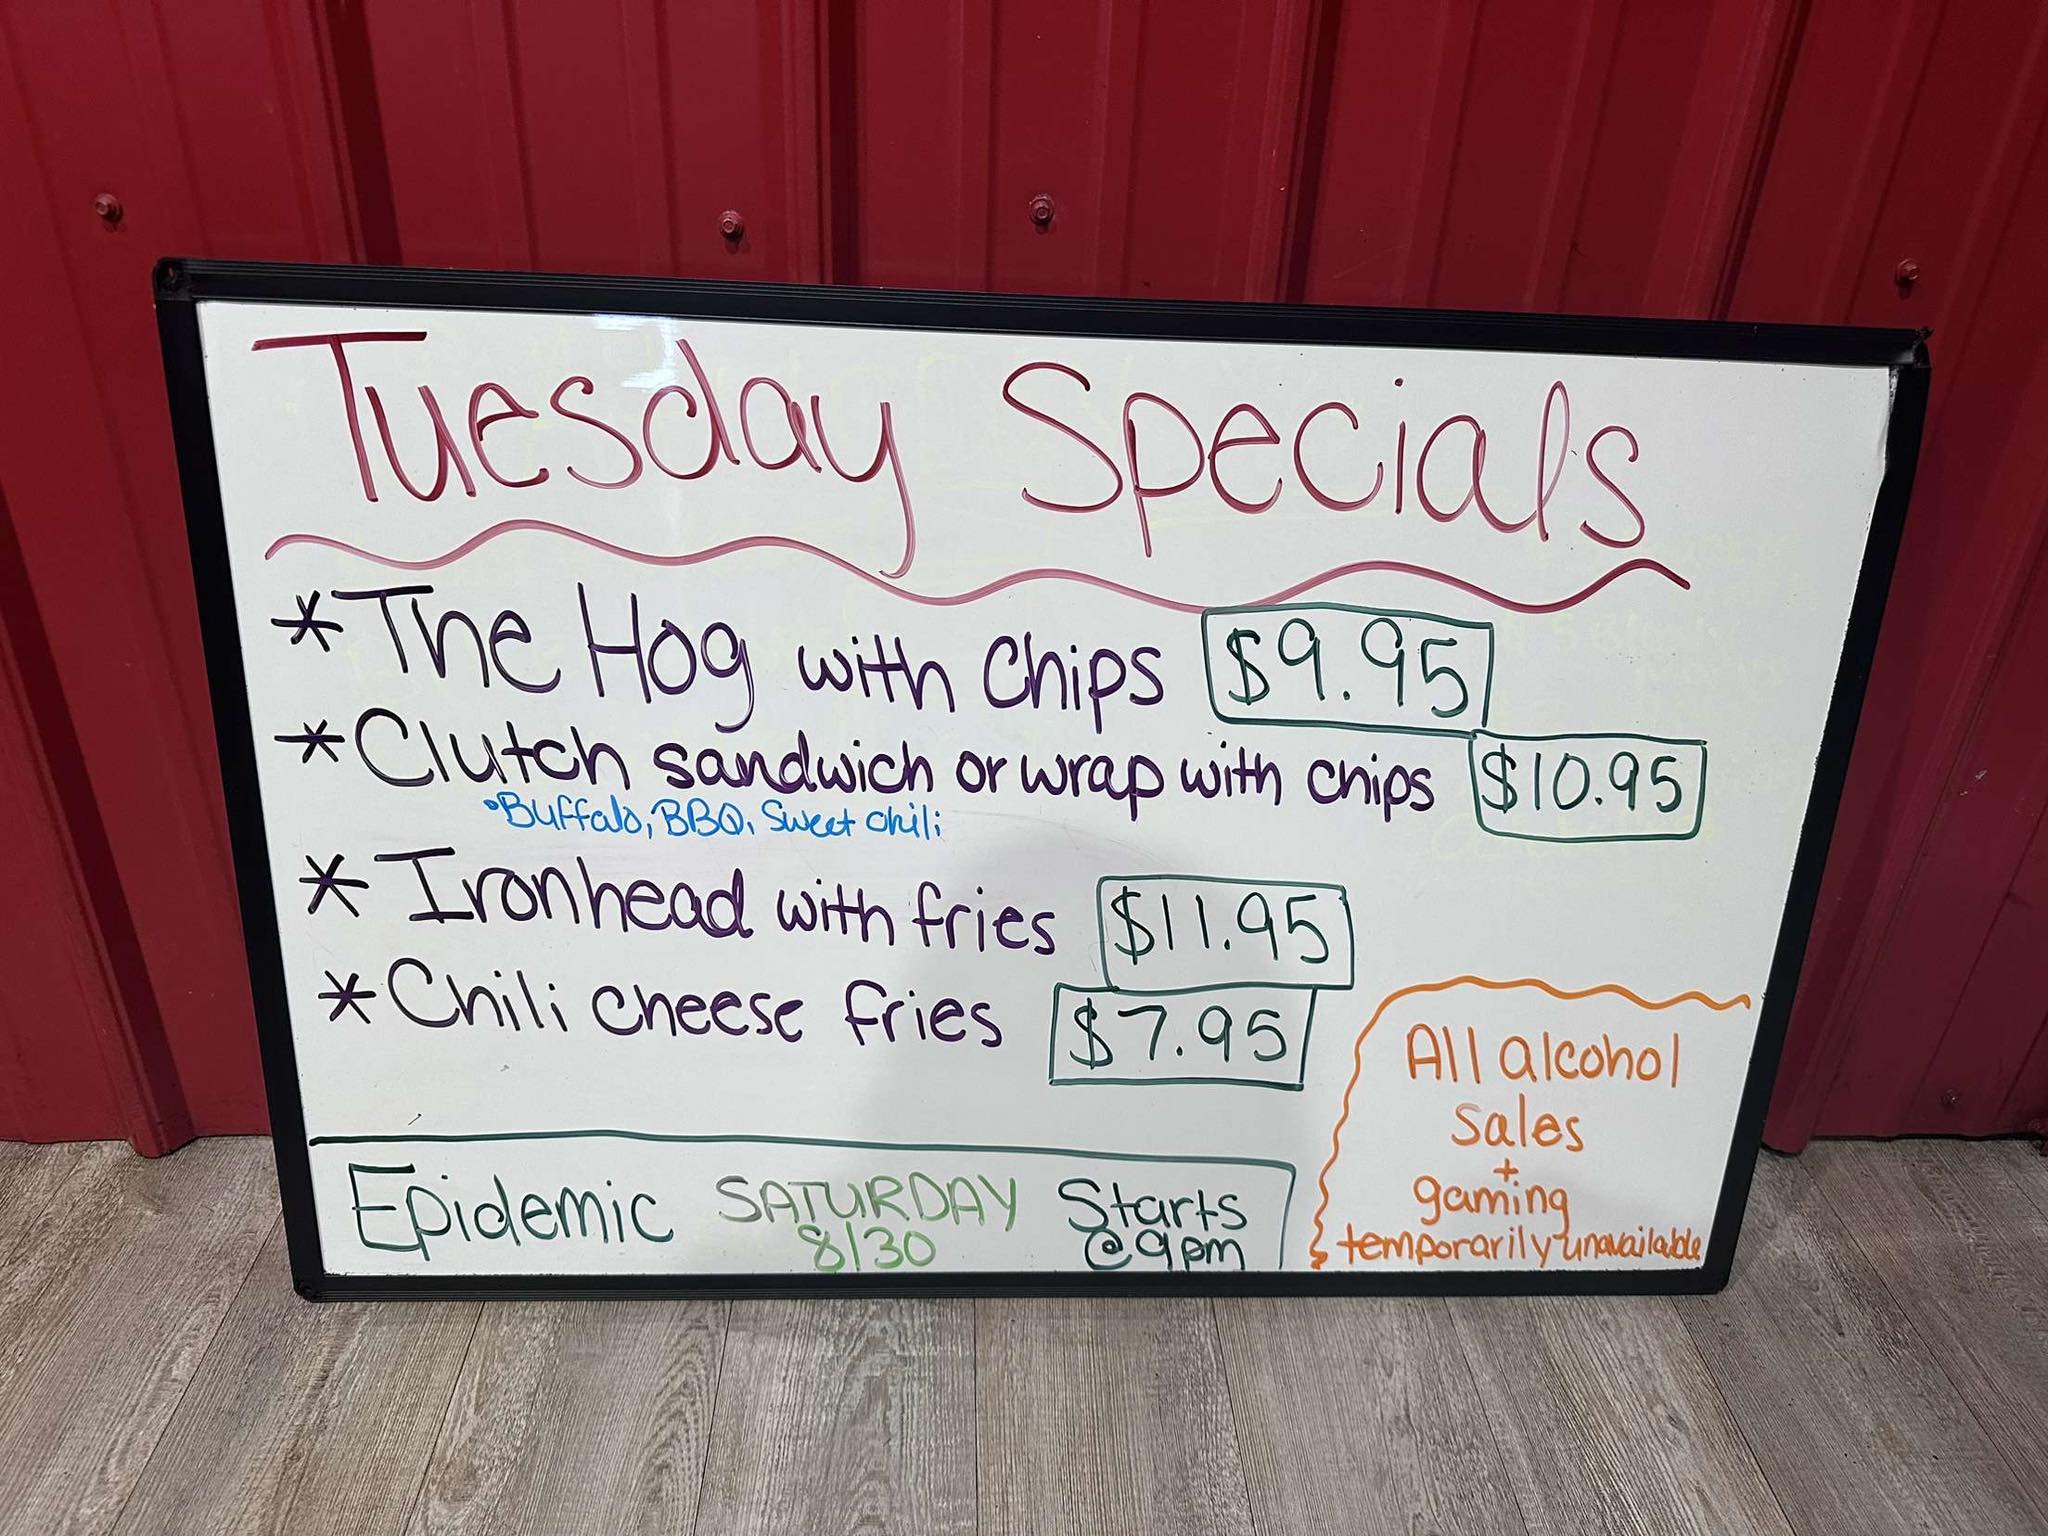 Tuesday Specials
*The Hog with Chips $9.95
*Clutch sandwich or wrap with chips $10.95
•Buffalo, BBQ, Sweet chili
*Ironhead with fries $11.95
*Chili cheese fries $7.95
Epidemic SATURDAY Starts
8/30 @9pm
All alcohol
sales
+
gaming
temporarily unavailable